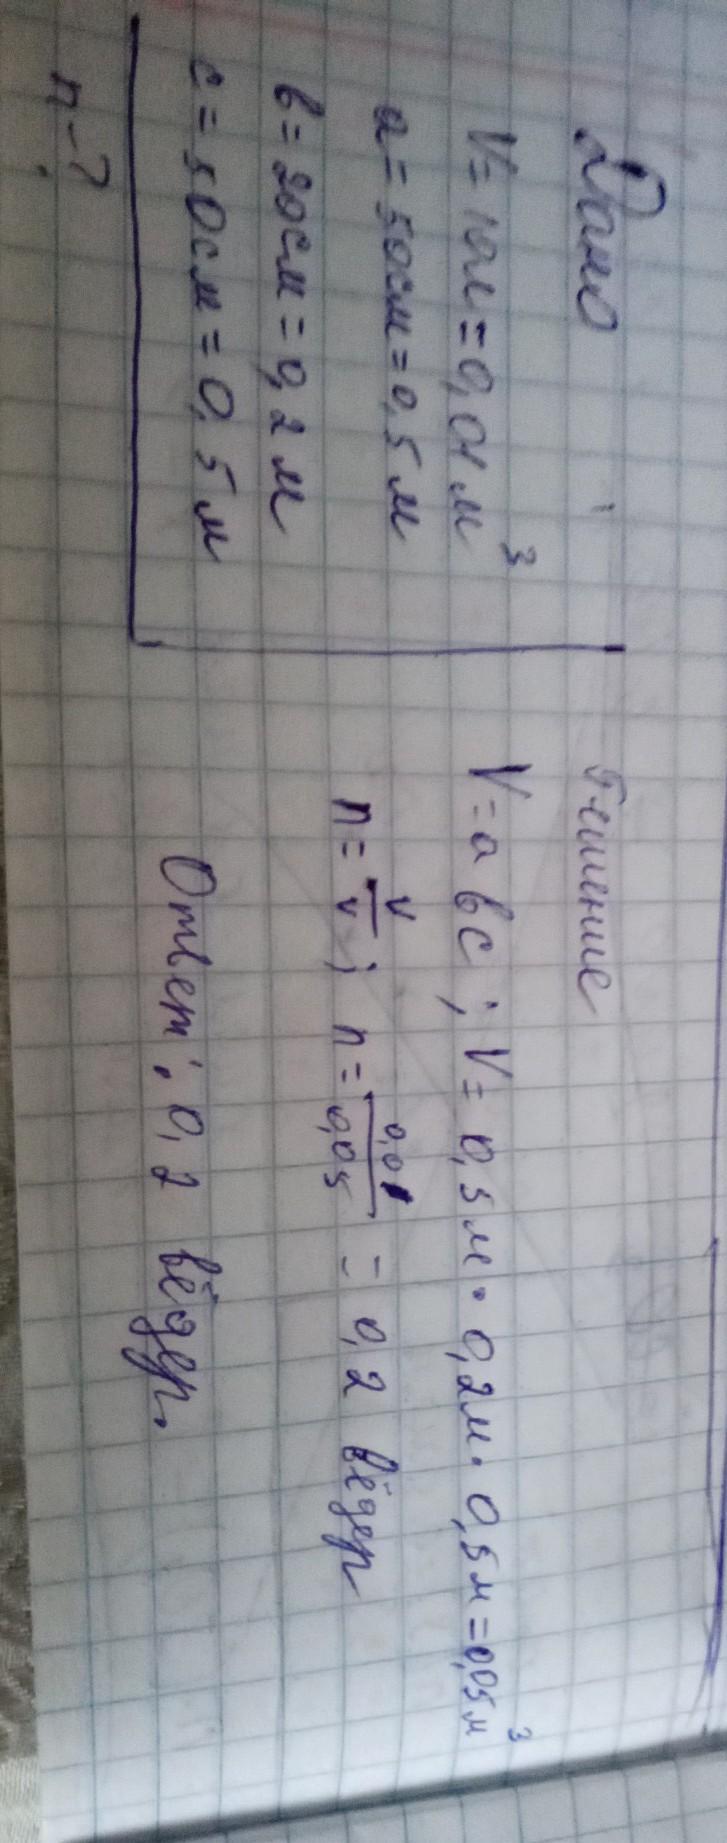 Дано
V = 10л = 0,01 м³
a = 50см = 0,5 м
b = 20см = 0,2 м
c = 50см = 0,5 м
n - ?
Решение
V = a b c ; V = 0,5 м · 0,2м · 0,5 м = 0,05 м³
n = V/V ; n = 0,01/0,05 = 0,2 вёдер
Ответ: 0,2 вёдер.